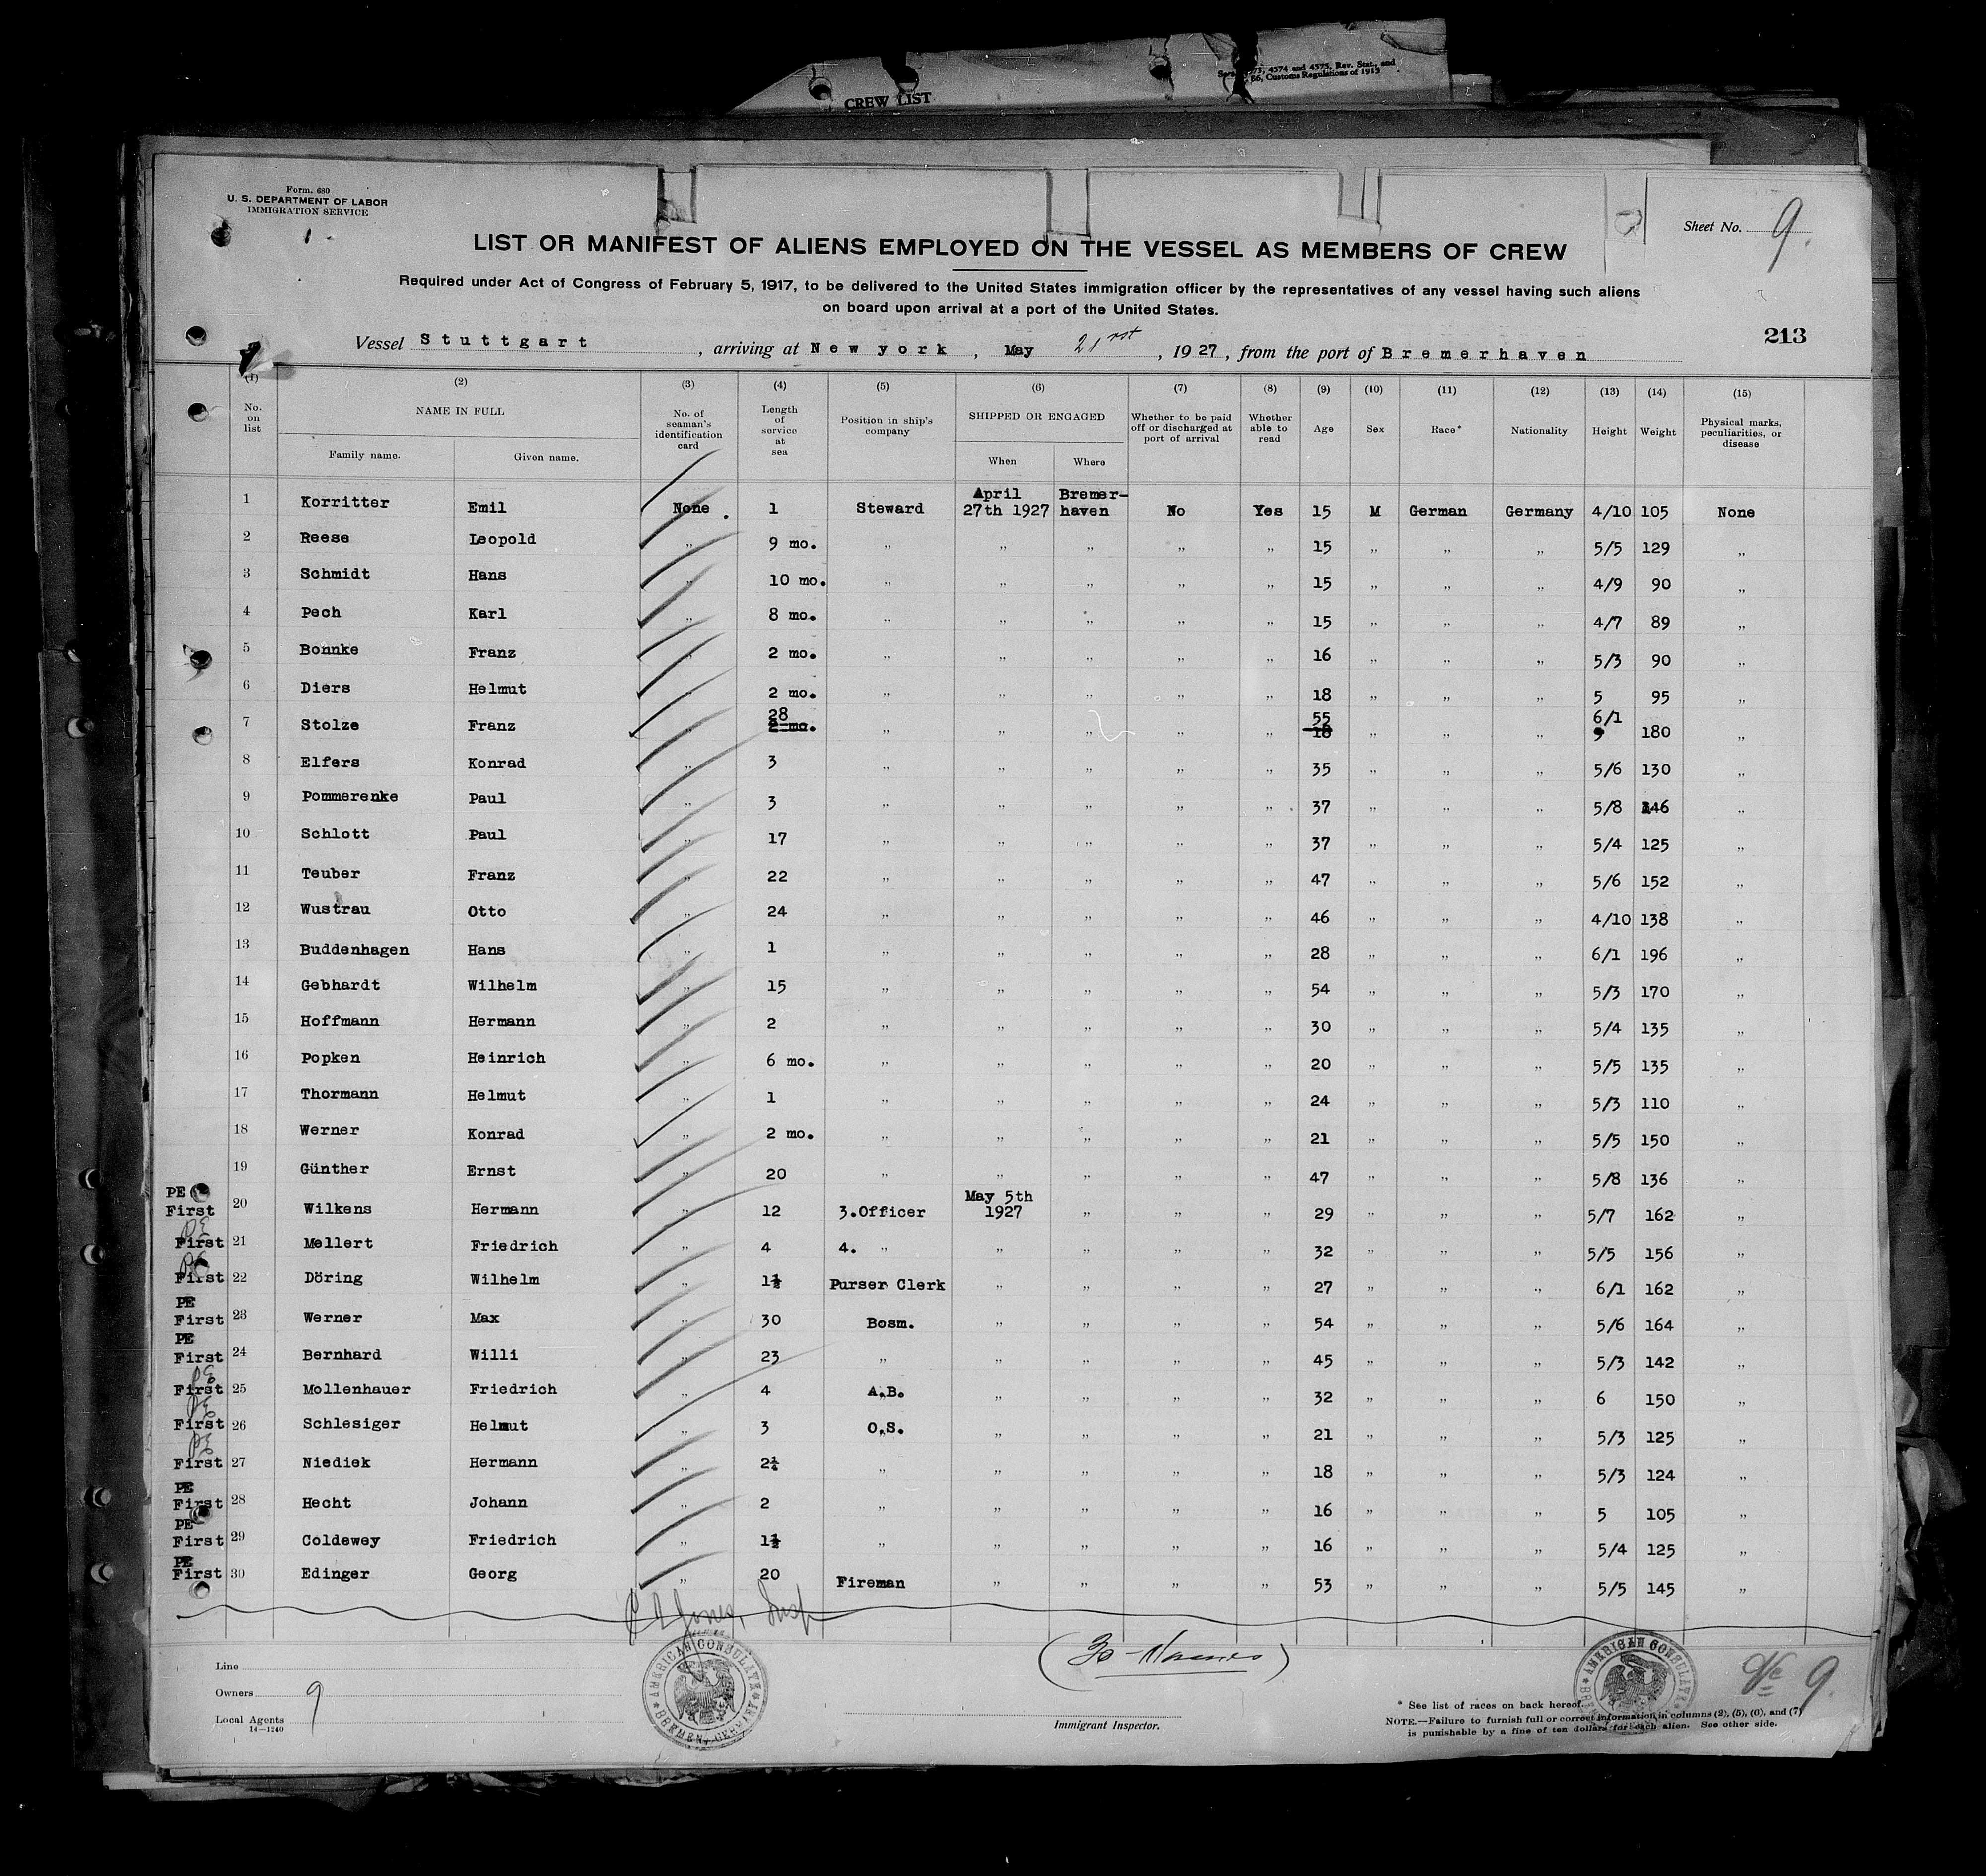 CREW LIST
4374 and 4375, Rev. Stat., and
Customs Regulations of 1915
Form. 680
U. S. DEPARTMENT OF LABOR
IMMIGRATION SERVICE
1.
Sheet No. 9.
LIST OR MANIFEST OF ALIENS EMPLOYED ON THE VESSEL AS MEMBERS OF CREW
Required under Act of Congress of February 5, 1917, to be delivered to the United States immigration officer by the representatives of any vessel having such aliens
on board upon arrival at a port of the United States.
213
Vessel Stuttgart, arriving at New york, May 21st, 1927, from the port of Bremerhaven
(1) (2) (3) (4) (5) (6) (7) (8) (9) (10) (11) (12) (13) (14) (15)
No. on list NAME IN FULL Family name. Given name. No. of seaman's identification card Length of service at sea Position in ship's company SHIPPED OR ENGAGED When Where Whether to be paid off or discharged at port of arrival Whether able to read Age Sex Race* Nationality Height Weight Physical marks, peculiarities, or disease
1 Korritter Emil None. 1 Steward April 27th 1927 Bremer-haven No Yes 15 M German Germany 4/10 105 None
2 Reese Leopold " 9 mo. " " " " " 15 " " " 5/5 129 "
3 Schmidt Hans " 10 mo. " " " " " 15 " " " 4/9 90 "
4 Pech Karl " 8 mo. " " " " " 15 " " " 4/7 89 "
5 Bonnke Franz " 2 mo. " " " " " 16 " " " 5/3 90 "
6 Diers Helmut " 2 mo. " " " " " 18 " " " 5 95 "
7 Stolze Franz " 28 2 mo. " " " " " 55 18 " " " 6/1 5 180 "
8 Elfers Konrad " 3 " " " " " 35 " " " 5/6 130 "
9 Pommerenke Paul " 3 " " " " " 37 " " " 5/8 146 "
10 Schlott Paul " 17 " " " " " 37 " " " 5/4 125 "
11 Teuber Franz " 22 " " " " " 47 " " " 5/6 152 "
12 Wustrau Otto " 24 " " " " " 46 " " " 4/10 138 "
13 Buddenhagen Hans " 1 " " " " " 28 " " " 6/1 196 "
14 Gebhardt Wilhelm " 15 " " " " " 54 " " " 5/3 170 "
15 Hoffmann Hermann " 2 " " " " " 30 " " " 5/4 135 "
16 Popken Heinrich " 6 mo. " " " " " 20 " " " 5/5 135 "
17 Thormann Helmut " 1 " " " " " 24 " " " 5/3 110 "
18 Werner Konrad " 2 mo. " " " " " 21 " " " 5/5 150 "
19 Günther Ernst " 20 " " " " " 47 " " " 5/8 136 "
PE First 20 Wilkens Hermann " 12 3.Officer May 5th 1927 " " " 29 " " " 5/7 162 "
PE First 21 Mellert Friedrich " 4 4. " " " " " 32 " " " 5/5 156 "
PE First 22 Döring Wilhelm " 1½ Purser Clerk " " " " 27 " " " 6/1 162 "
PE First 23 Werner Max " 30 Bosm. " " " " 54 " " " 5/6 164 "
PE First 24 Bernhard Willi " 23 " " " " " 45 " " " 5/3 142 "
PE First 25 Mollenhauer Friedrich " 4 A.B. " " " " 32 " " " 6 150 "
PE First 26 Schlesiger Helmut " 3 O.S. " " " " 21 " " " 5/3 125 "
PE First 27 Niediek Hermann " 2¼ " " " " " 18 " " " 5/3 124 "
PE First 28 Hecht Johann " 2 " " " " " 16 " " " 5 105 "
PE First 29 Coldewey Friedrich " 1½ " " " " " 16 " " " 5/4 125 "
PE First 30 Edinger Georg " 20 Fireman " " " " 53 " " " 5/5 145 "
Jones, Insp
(30 - Names)
Line
Owners
Local Agents
14—1240
9
AMERICAN CONSULATE BREMEN, GERMANY
Immigrant Inspector.
AMERICAN CONSULATE
9.
* See list of races on back hereof.
NOTE.—Failure to furnish full or correct information in columns (2), (5), (6), and (7)
is punishable by a fine of ten dollars for each alien. See other side.